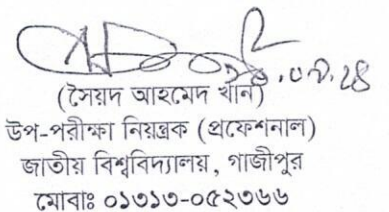 (সৈয়দ আহমেদ খান)
উপ-পরীক্ষা নিয়ন্ত্রক (প্রফেশনাল)
জাতীয় বিশ্ববিদ্যালয়, গাজীপুর
মোবাঃ ০১৩১৩-০৫২৩৬৬